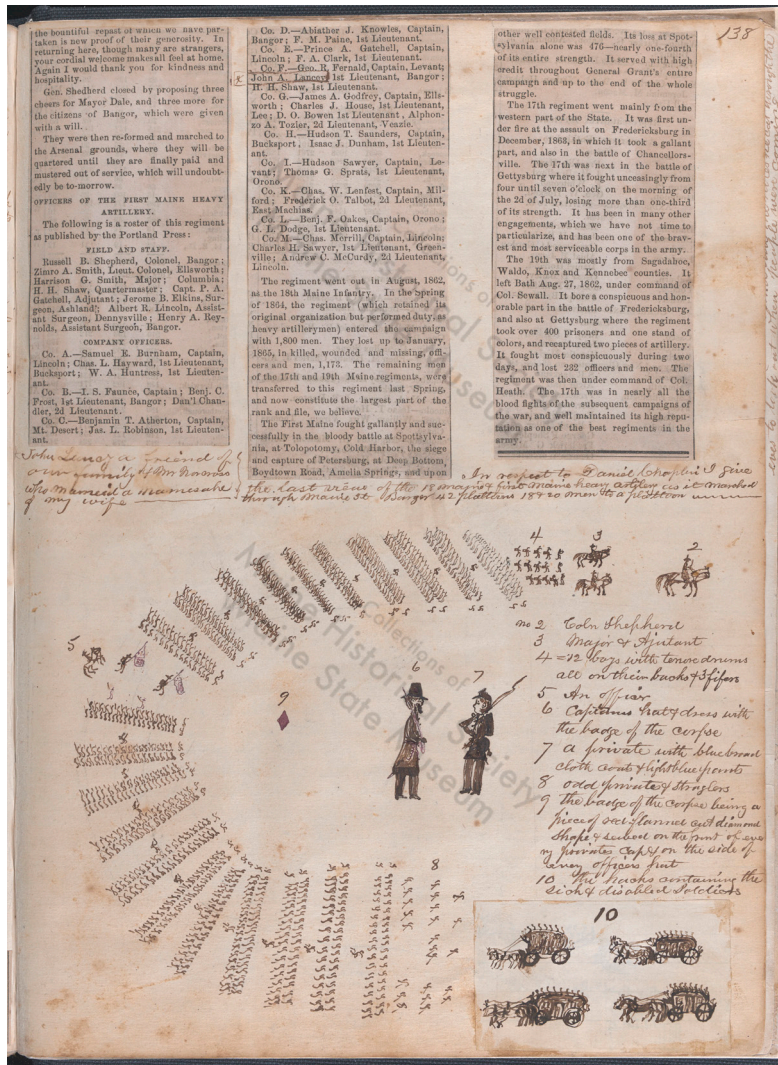 138
the bountiful repast of which we have par-
taken is new proof of their generosity. In
returning here, though many are strangers,
your cordial welcome makes all feel at home.
Again I would thank you for kindness and
hospitality.
Gen. Shedherd closed by proposing three
cheers for Mayor Dale, and three more for
the citizens of Bangor, which were given
with a will.
They were then re-formed and marched to
the Arsenal grounds, where they will be
quartered until they are finally paid and
mustered out of service, which will undoubt-
edly be to-morrow.
OFFICERS OF THE FIRST MAINE HEAVY
ARTILLERY.
The following is a roster of this regiment
as published by the Portland Press:
FIELD AND STAFF.
Russell B. Shepherd, Colonel, Bangor;
Zimro A. Smith, Lieut. Colonel, Ellsworth;
Harrison G. Smith, Major; Columbia;
H. H. Shaw, Quartermaster; Capt. P. A.
Gatchell, Adjutant; Jerome B. Elkins, Sur-
geon, Ashland; Albert R. Lincoln, Assist-
ant Surgeon, Dennysville; Henry A. Rey-
nolds, Assistant Surgeon, Bangor.
COMPANY OFFICERS.
Co. A.—Samuel E. Burnham, Captain,
Lincoln; Chas. L. Hayward, 1st Lieutenant,
Bucksport; W. A. Huntress, 1st Lieuten-
ant.
Co. B.—I. S. Faunce, Captain; Benj. C.
Frost, 1st Lieutenant, Bangor; Dan'l Chan-
dler, 2d Lieutenant.
Co. C.—Benjamin T. Atherton, Captain,
Mt. Desert; Jas. L. Robinson, 1st Lieuten-
ant.
Co. D.—Abiather J. Knowles, Captain,
Bangor; F. M. Paine, 1st Lieutenant.
Co. E.—Prince A. Gatchell, Captain,
Lincoln; F. A. Clark, 1st Lieutenant.
Co. F.—Geo. R. Fernald, Captain, Levant;
John A. Lancey, 1st Lieutenant, Bangor;
H. H. Shaw, 1st Lieutenant.
Co. G.—James A. Godfrey, Captain, Ells-
worth; Charles J. House, 1st Lieutenant,
Lee; D. O. Bowen 1st Lieutenant, Alphon-
zo A. Tozier, 2d Lieutenant, Veazie.
Co. H.—Hudson T. Saunders, Captain,
Bucksport. Isaac J. Dunham, 1st Lieuten-
ant.
Co. I.—Hudson Sawyer, Captain, Le-
vant; Thomas G. Sprats, 1st Lieutenant,
Orono.
Co. K.—Chas. W. Lenfest, Captain, Mil-
ford; Frederick O. Talbot, 2d Lieutenant,
East Machias.
Co. L.—Benj. F. Oakes, Captain, Orono;
G. L. Dodge, 1st Lieutenant.
Co. M.—Chas. Merrill, Captain, Lincoln;
Charles H. Sawyer, 1st Lieutenant, Green-
ville; Andrew C. McCurdy, 2d Lieutenant,
Lincoln.
The regiment went out in August, 1862,
as the 18th Maine Infantry. In the Spring
of 1864, the regiment (which retained its
original organization but performed duty as
heavy artillerymen) entered the campaign
with 1,800 men. They lost up to January,
1865, in killed, wounded and missing, offi-
cers and men, 1,173. The remaining men
of the 17th and 19th Maine regiments, were
transferred to this regiment last Spring,
and now constitute the largest part of the
rank and file, we believe.
The First Maine fought gallantly and suc-
cessfully in the bloody battle at Spottsylva-
nia, at Tolopotomy, Cold Harbor, the siege
and capture of Petersburg, at Deep Bottom,
Boydtown Road, Amelia Springs, and upon
other well contested fields. Its loss at Spot-
sylvania alone was 476—nearly one-fourth
of its entire strength. It served with high
credit throughout General Grant's entire
campaign and up to the end of the whole
struggle.
The 17th regiment went mainly from the
western part of the State. It was first un-
der fire at the assault on Fredericksburg in
December, 1863, in which it took a gallant
part, and also in the battle of Chancellors-
ville. The 17th was next in the battle of
Gettysburg where it fought unceasingly from
four until seven o'clock on the morning of
the 2d of July, losing more than one-third
of its strength. It has been in many other
engagements, which we have not time to
particularize, and has been one of the brav-
est and most serviceable corps in the army.
The 19th was mostly from Sagadahoc,
Waldo, Knox and Kennebec counties. It
left Bath Aug. 27, 1862, under command of
Col. Sewall. It bore a conspicuous and hon-
orable part in the battle of Fredericksburg,
and also at Gettysburg where the regiment
took over 400 prisoners and one stand of
colors, and recaptured two pieces of artillery.
It fought most conspicuously during two
days, and lost 232 officers and men. The
regiment was then under command of Col.
Heath. The 17th was in nearly all the
blood fights of the subsequent campaigns of
the war, and well maintained its high repu-
tation as one of the best regiments in the
army.
John Lancy a friend of
our family & Mr Norris
who married a namesake
of my wife
In respect to Daniel Chaplin I give
the last view of the 18 maine & first maine heavy artilery as it marched
through Maine St Bangor 42 plattens 18 & 20 men to a platoon
4 3 2
no 2 Coln Shepherd
3 Major & Ajutant
4 = 12 boys with tenor drums
all on their backs & 3 fifers
5 An officer
6 Capitanns hat & dress with
the badge of the corpse
7 a private with blue broad
cloth coat & light blue pants
8 odd privates & straglers
9 the badge of the corpse being a
piece of red flannel cut diamond
shape & seibed on the front of eve
ry privates cap & on the side of
every officers hat
10 the hacks containing the
sick & disabled Soldiers
5
6
7
9
8
10
Collections of
Maine Historical Society
Maine State Museum